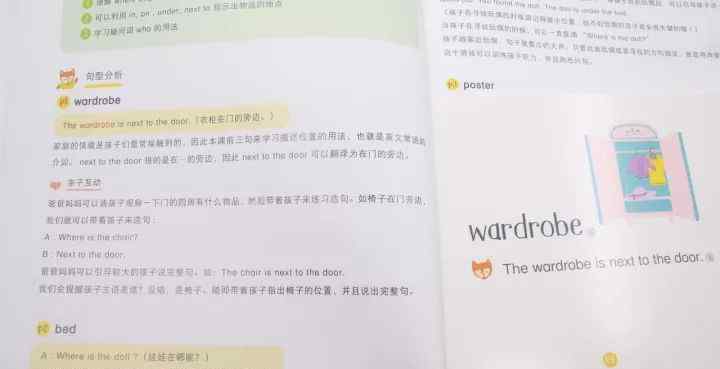 ② 可以利用 in, on, under, next to 指示出物品的地点
③ 学习疑问词 who 的用法
句型分析
wardrobe
The wardrobe is next to the door.（衣柜在门的旁边。）
家庭的情境是孩子们最常接触到的，因此本课前三句来学习描述位置的用法，也就是英文常说的
介词。next to the door 指的是在…的旁边，因此 next to the door 可以翻译为在门的旁边。
亲子互动
爸爸妈妈可以请孩子观察一下门的四周有什么物品，然后带着孩子来练习造句。如椅子在门旁边，
我们就可以带着孩子来造句：
A：Where is the chair?
B：Next to the door.
爸爸妈妈可以引导较大的孩子说完整句。如：The chair is next to the door.
我们会提醒孩子主语是谁？没错，是椅子。随即带着孩子指出椅子的位置，并且说出完整句。
bed
A：Where is the doll？（娃娃在哪呢？）
You found my doll. The doll is under the bed.
当孩子在寻找玩偶的时候，可以一直重复 "Where is the doll?"
poster
wardrobe
The wardrobe is next to the door.